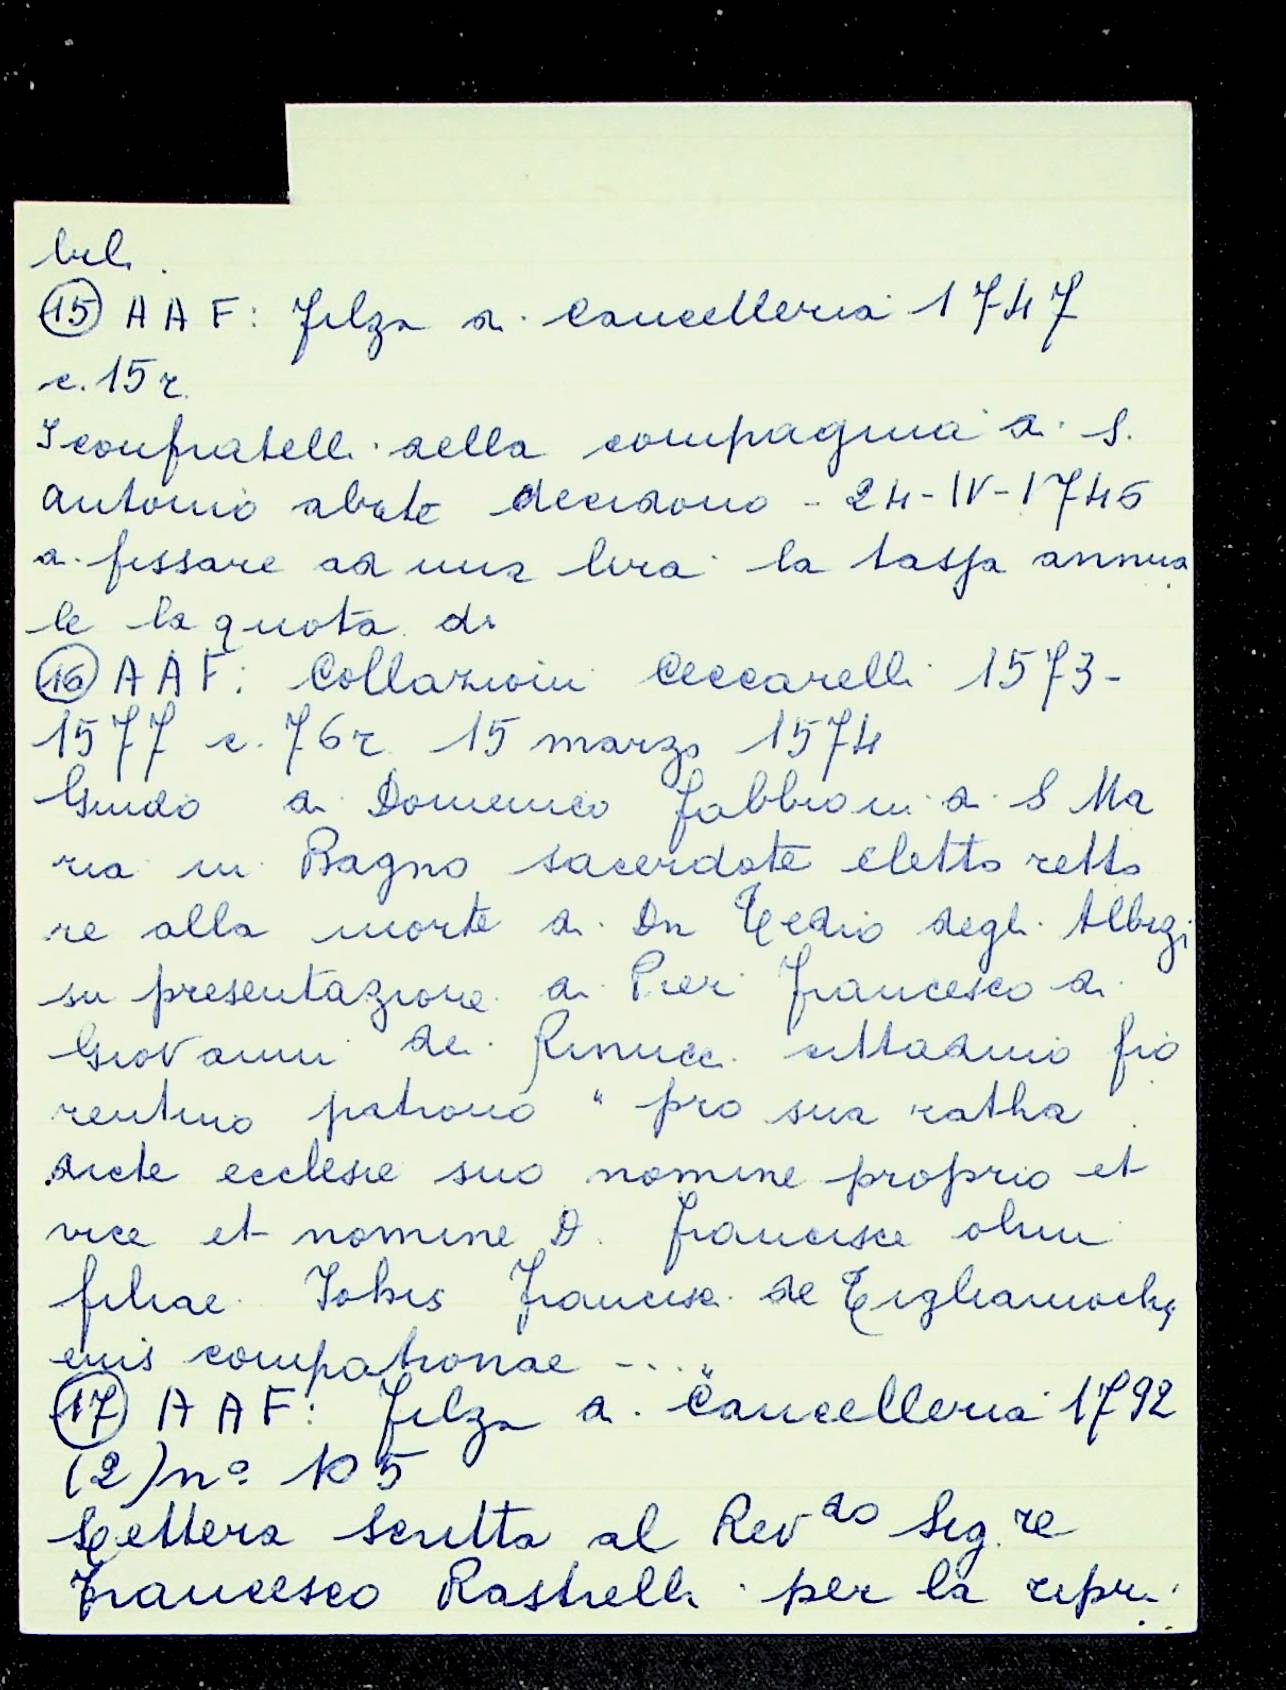 bili.
(15) A A F: Filza di Cancelleria 1747
c. 15 r.
I confratelli della compagnia di S.
Antonio abate decidono - 24-IV-1745
di fissare ad una lira la tassa annua
le la quota di
(16) A A F: Collazioni Ceccarelli 1573-
1577 c. 76 r. 15 marzo 1574
Guido di Domenico Fabbroni di S Ma
ria in Bagno sacerdote eletto retto
re alla morte di Dn Tedio degli Albizi
su presentazione di Pier Francesco di
Giovanni dei Rinucci cittadino fio
rentino patrono " pro sua ratha
dicte ecclesie suo nomine proprio et
vice et nomine D. Francisce olim
filiae Johis Francisci de Tigliamochis
eius compatronae -..."
(17) A A F: Filza di Cancelleria 1792
(2) nº 105
Lettera scritta al Rev do Sig.re
Francesco Rastrelli per la ripri